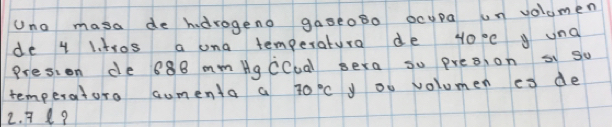 Una masa de hidrogeno gaseoso ocupa un volumen
de 4 litros a una temperatura de 40°C y una
presion de 688 mm Hg ¿Cual sera su presion si su
temperatura aumenta a 70°C y su volumen es de
2.7 l?